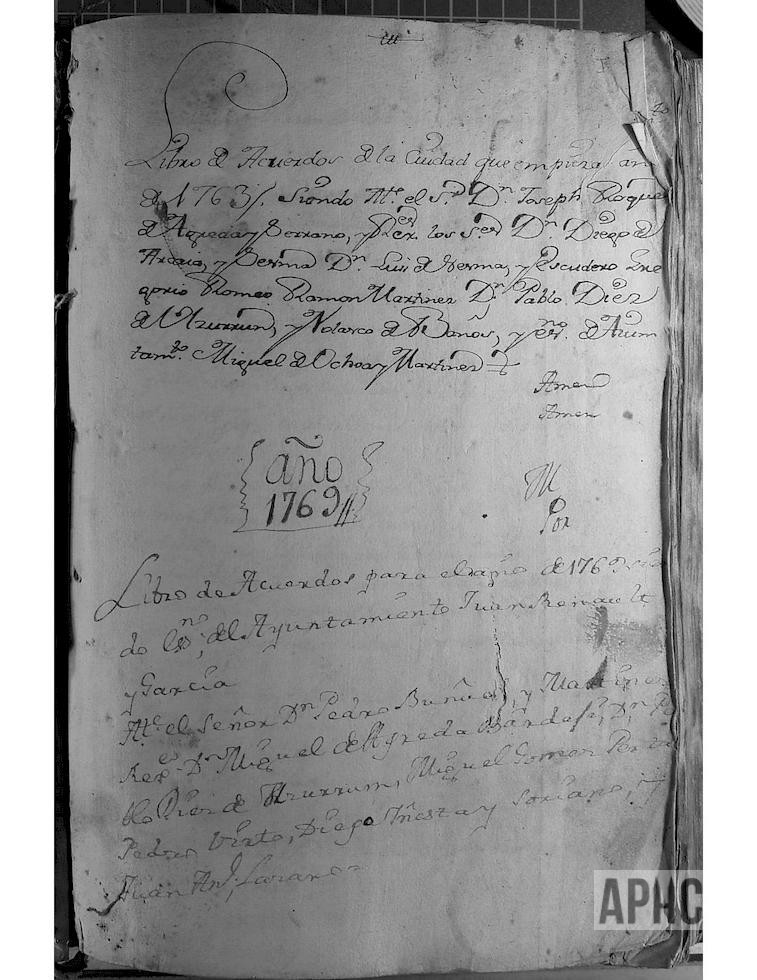 Libro de Acuerdos de la Ciudad que empieza
de 1763 /. Siendo Alc.e el S.r D.n Joseph Roque
de Agreda y Serrano, y Rex.es los S.res D.n Diego de
y D.n Luis de Lerma, y Escudero Gre
gorio Romeo Ramon Martinez D.n Pablo Diez
de Uzurrun, y Nolasco de Baños, y de Aiun
tam.to Miguel de Ochoa y Martinez
Amen
Amen
año
1769
M
Por
Libro de Acuerdos para el año de 1769 sien
do es.no del Ayuntamiento Juan
y Garcia
Al.e el Señor D.n Pedro Buñuel, y Martinez
Rex.es D.n Miguel de Agreda D.n Pa
blo Diez de Uzurrum, Miguel Gomez
Pedro Virto, Diego Yñesta y Soriano, y
Juan Ant.
APHC